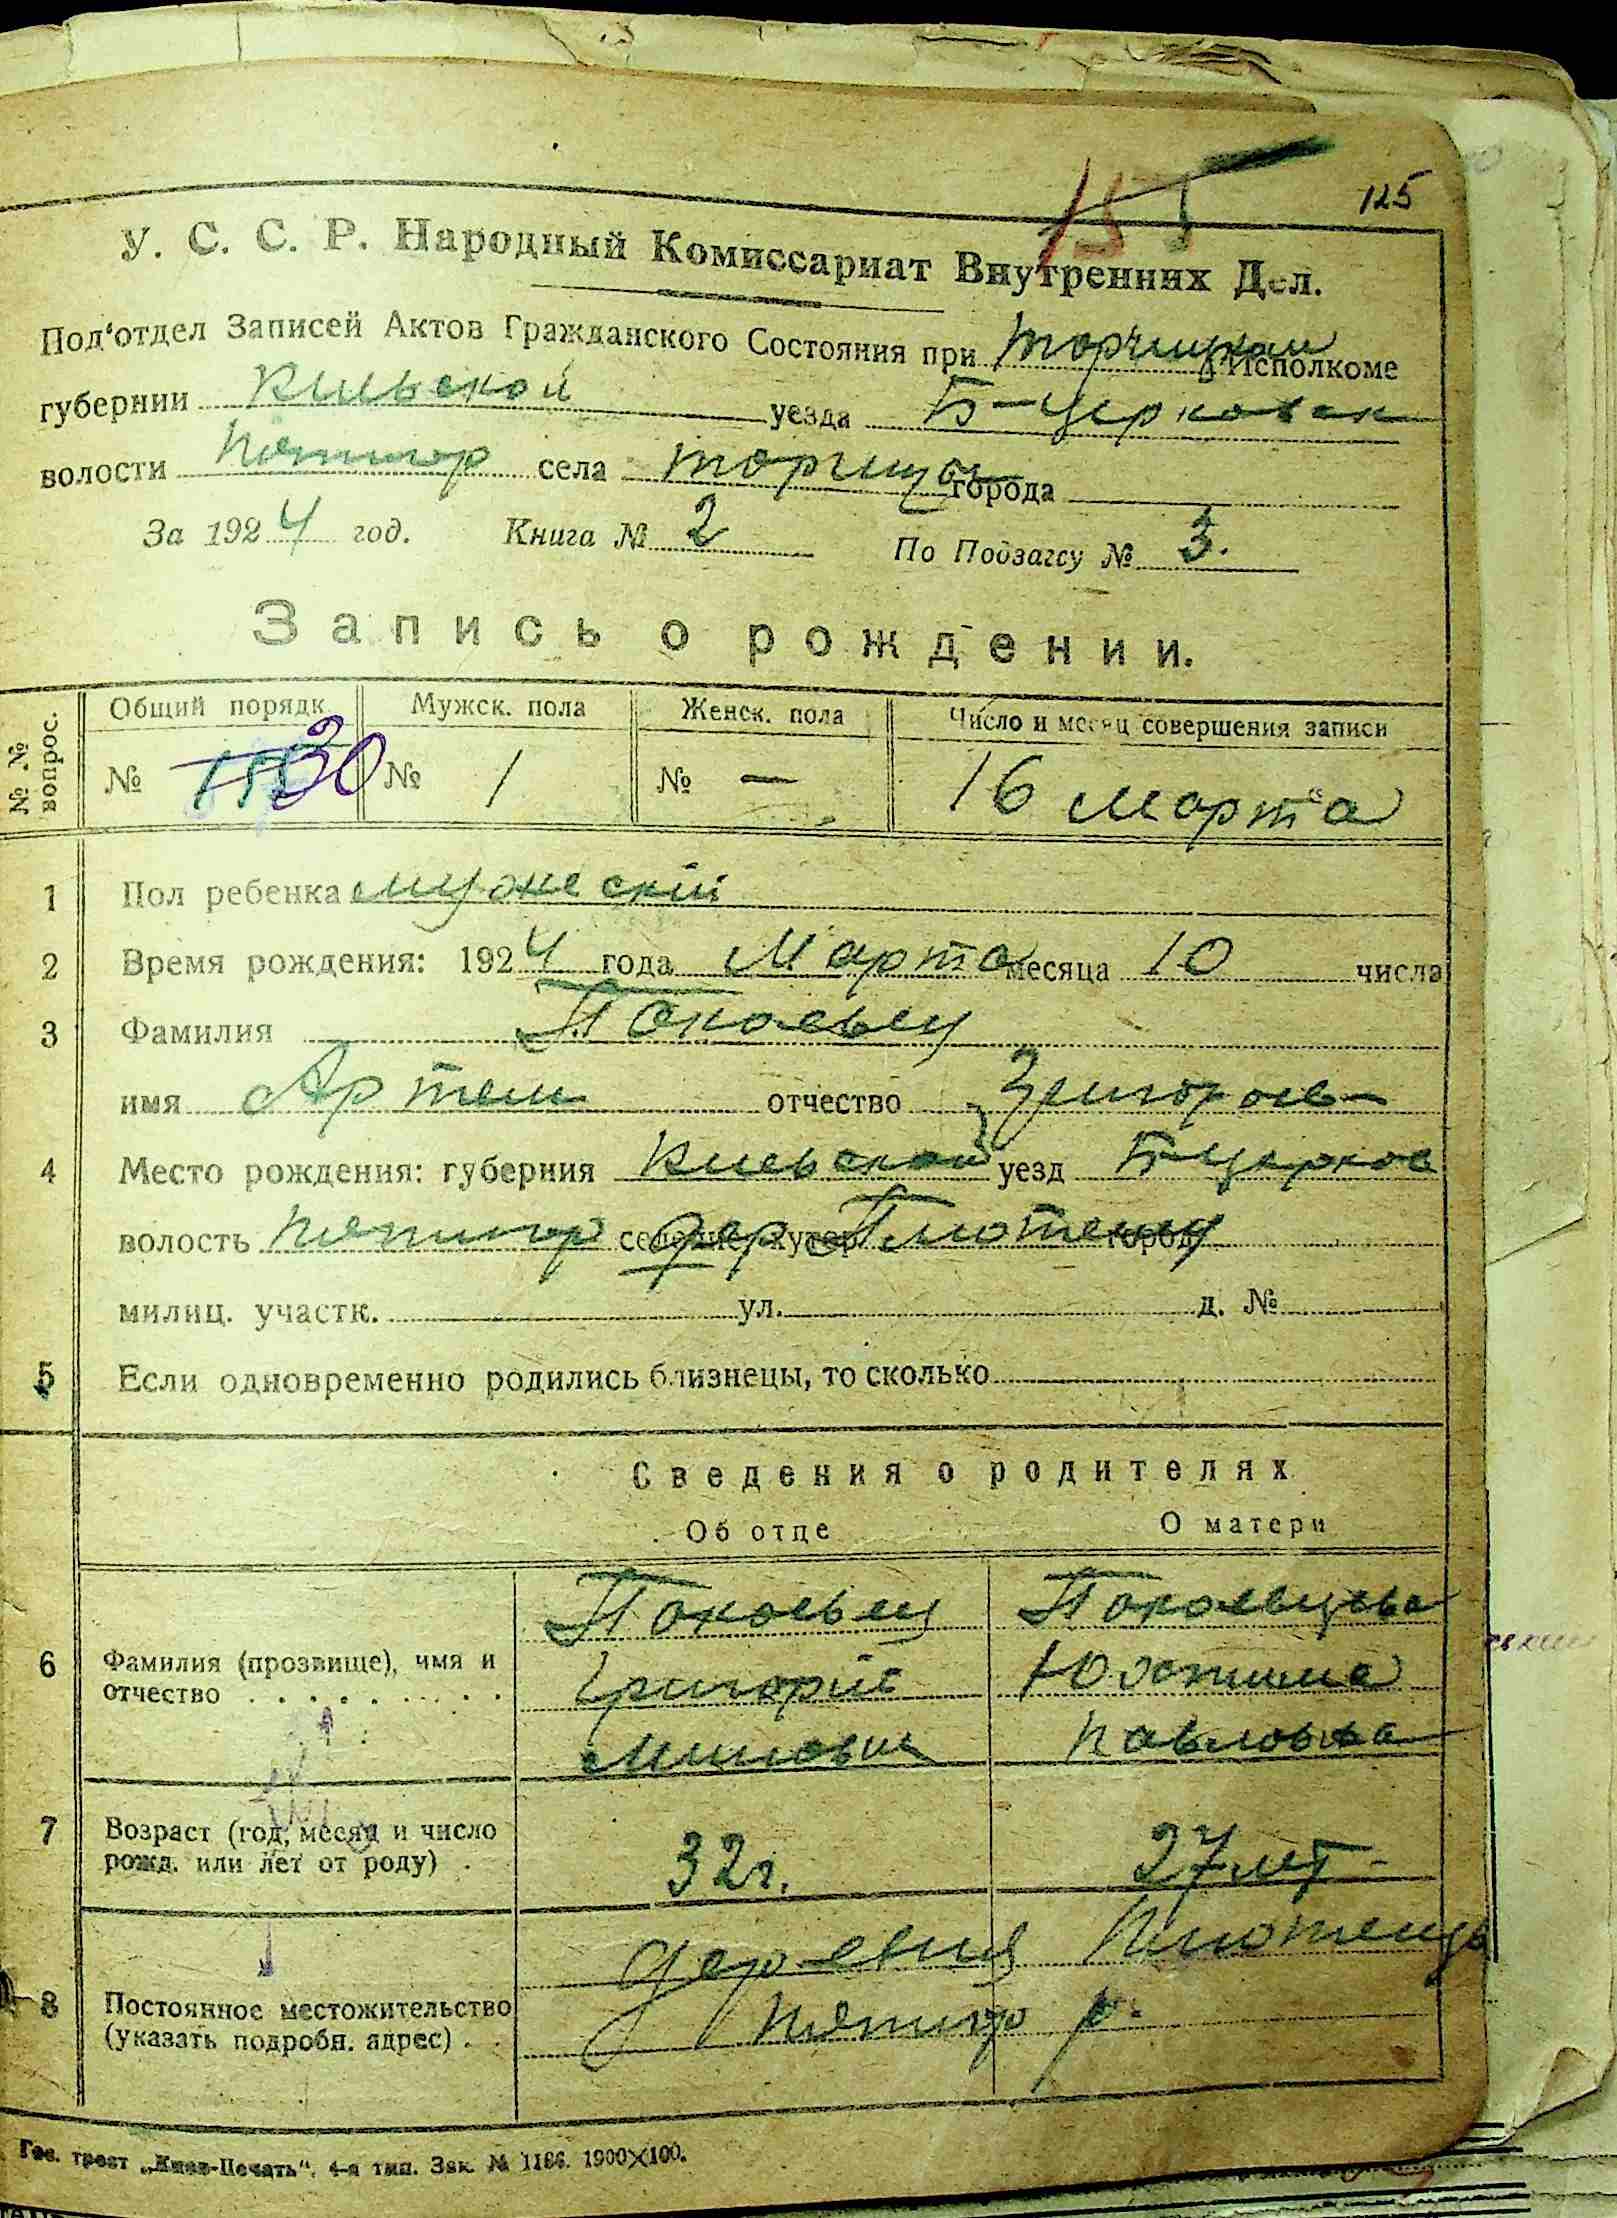 125
У. С. С. Р. Народный Комиссариат Внутренних Дел.
Под'отдел Записей Актов Гражданского Состояния при Торчицком Исполкоме
губернии Киевской уезда Б-Церковск
волости Пятигор села Торчица города
За 1924 год. Книга № 2 По Подзагсу № 3.
Запись о рождении.
№ № вопрос. Общий порядк. Мужск. пола Женск. пола Число и месяц совершения записи
№ 30 № 1 № — 16 Марта
1 Пол ребенка мужескій
2 Время рождения: 1924 года Марта месяца 10 числа
3 Фамилия Покоевец
имя Артем отчество Григорьев
4 Место рождения: губерния Киевской уезд Б-Церков
волость Пятигор селение, хутор дер город
милиц. участк. ул. д. №
5 Если одновременно родились близнецы, то сколько
Сведения о родителях
Об отце О матери
6 Фамилия (прозвище), имя и отчество
Покоевец Покоевцева
Григорій Юстина
Павловна
7 Возраст (год, месяц и число рожд. или лет от роду) 32 г. 27 лет
деревня
8 Постоянное местожительство (указать подробн. адрес) Пятигор р.
Гос. трест „Киев-Печать“, 4-я тип. Зак. № 1186. 1900×100.